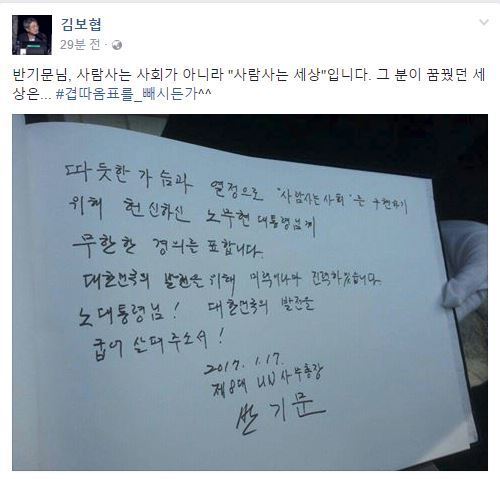 김보협
29분 전 ·
반기문님, 사람사는 사회가 아니라 "사람사는 세상"입니다. 그 분이 꿈꿨던 세
상은... #겹따옴표를_빼시든가^^
따듯한 가슴과 열정으로 '사람사는 사회'를 구현하기
위해 헌신하신 노무현 대통령님께
무한한 경의를 표합니다.
대한민국의 발전을 위해 미력이나마 진력하겠습니다
노대통령님! 대한민국의 발전을
굽어 살펴주소서!
2017. 1.17.
제8대 UN사무총장
반기문